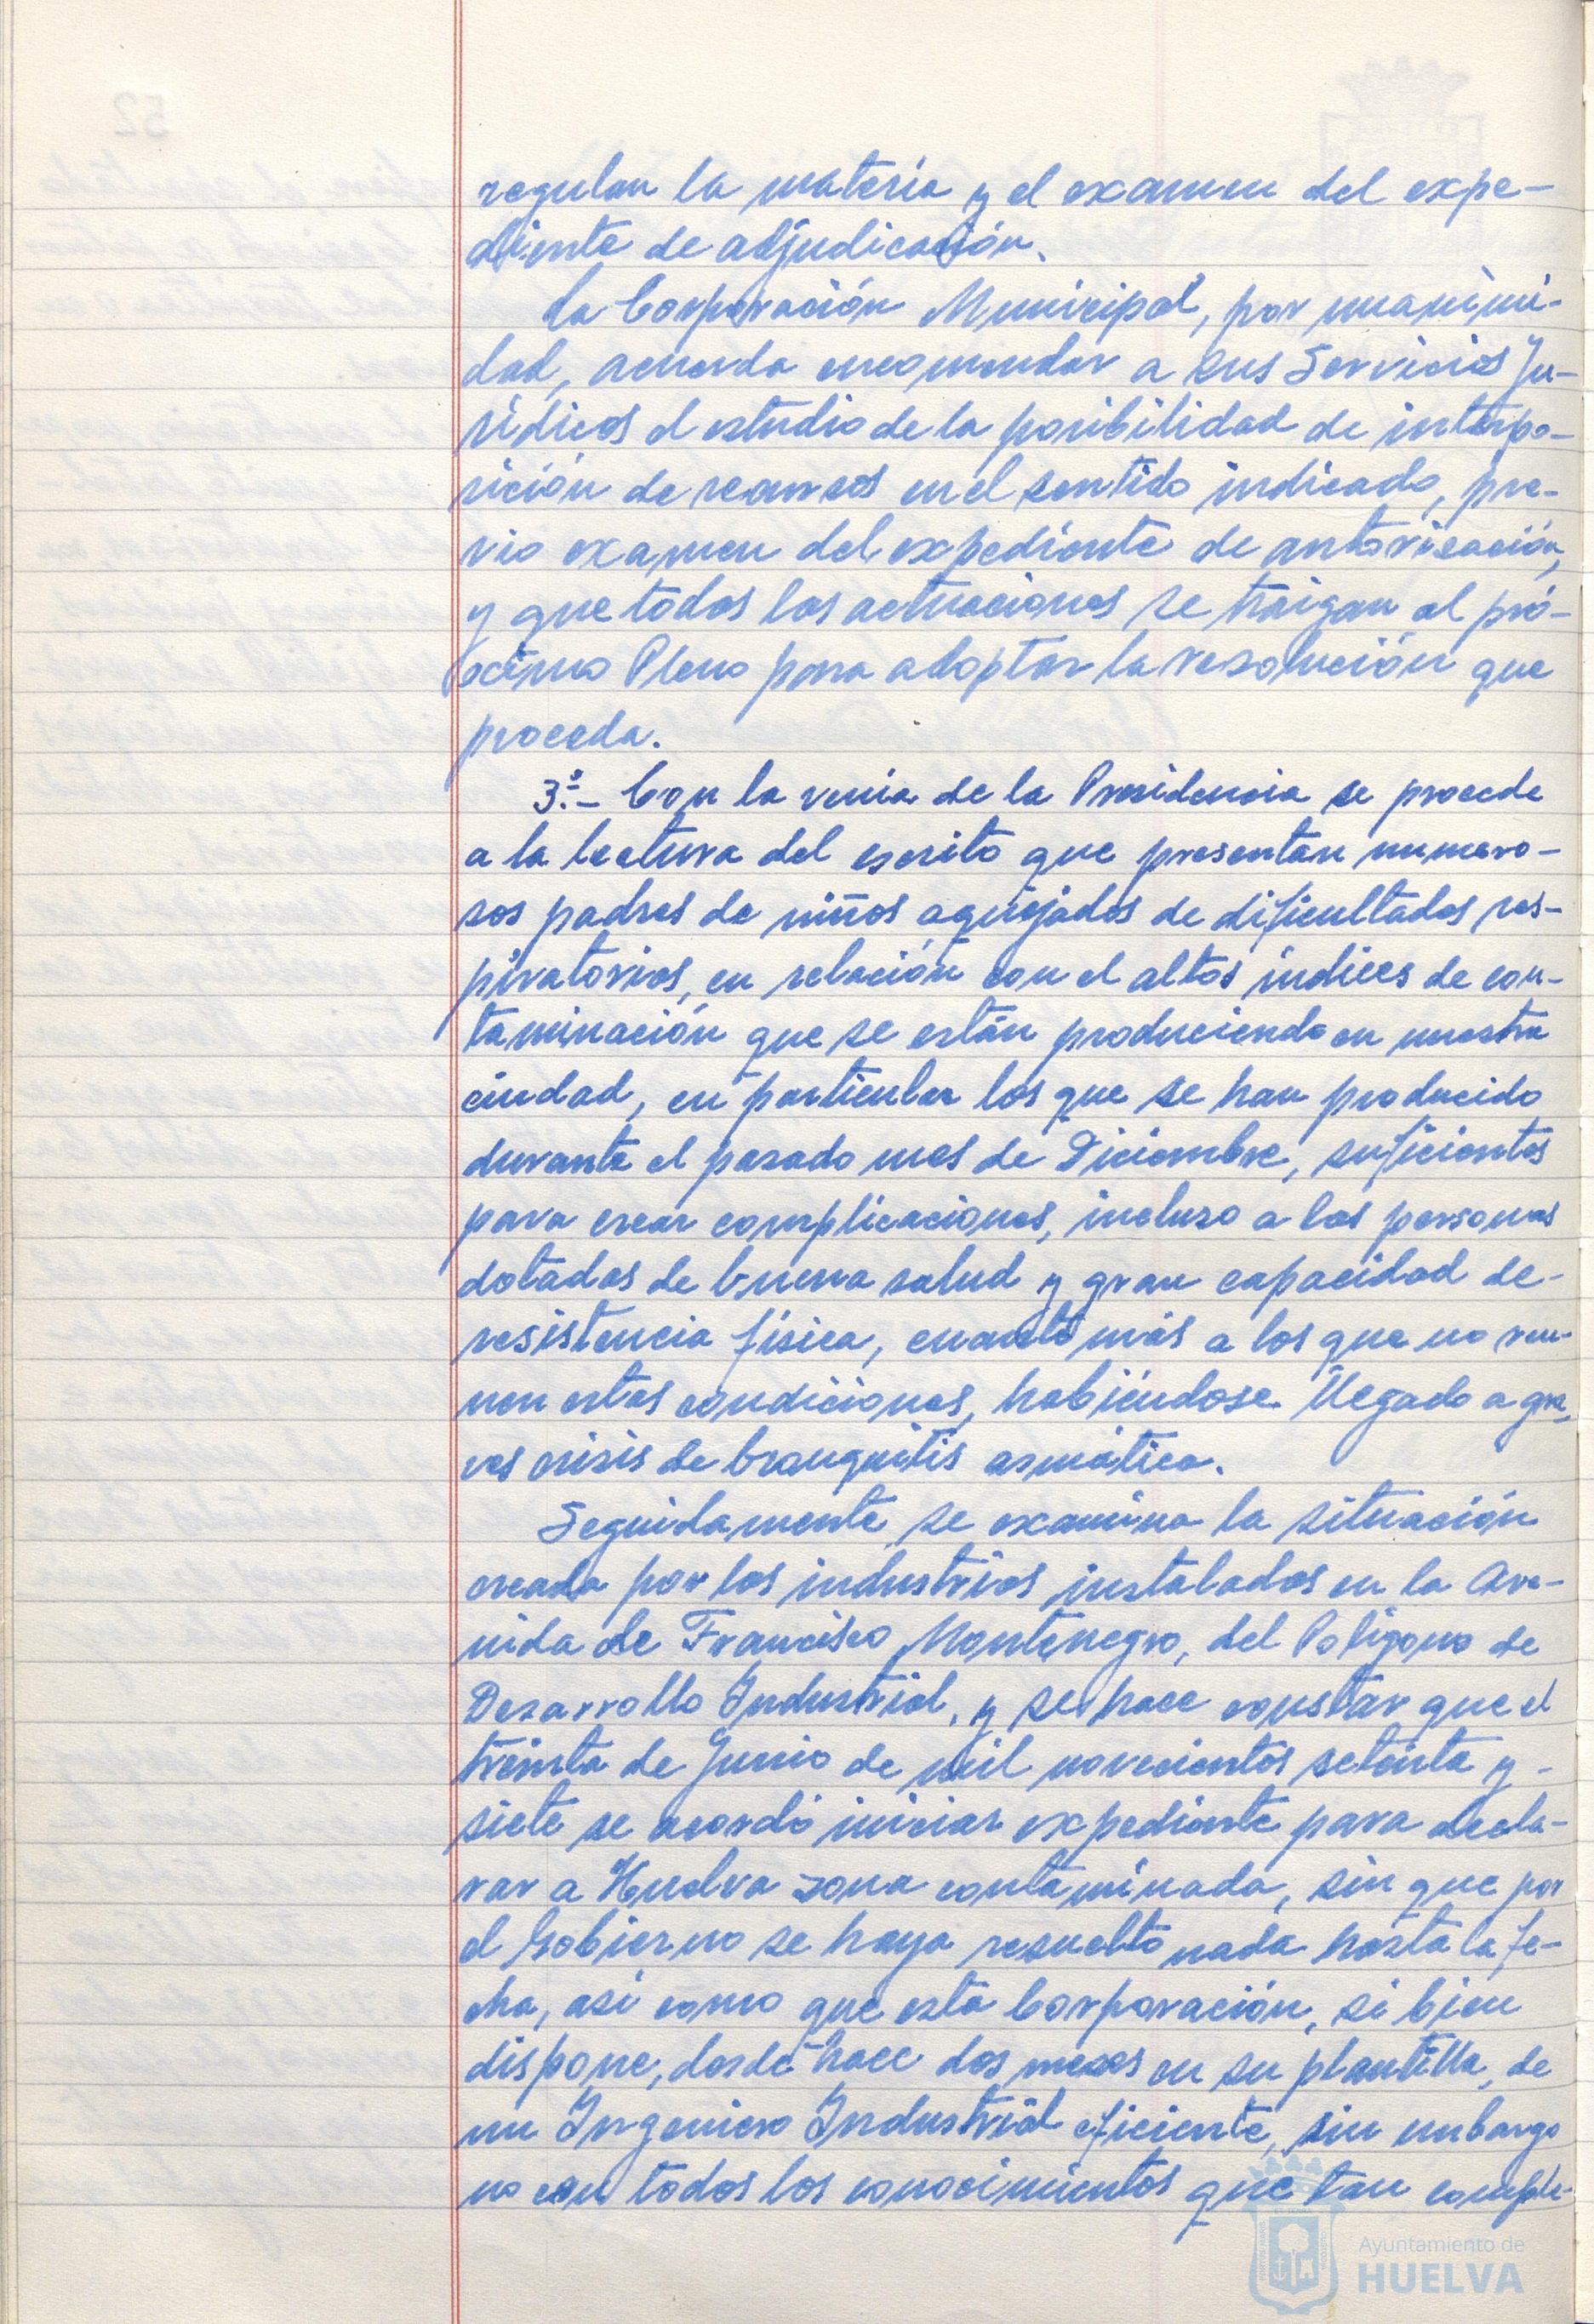 regulan la materia y el examen del expe-
diente de adjudicación.
La Corporación Municipal, por unanimi-
dad, acuerda encomendar a sus Servicios Ju-
rídicos el estudio de la posibilidad de interpo-
sición de recursos en el sentido indicado, pre-
vio examen del expediente de autorización,
y que todas las actuaciones se traigan al pró-
ximo Pleno para adoptar la resolución que
proceda.
3º.- Con la venia de la Presidencia se procede
a la lectura del escrito que presentan numero-
sos padres de niños aquejados de dificultades res-
piratorias, en relación con el altos índices de con-
taminación que se están produciendo en nuestra
ciudad, en particular los que se han producido
durante el pasado mes de Diciembre, suficientes
para crear complicaciones, incluso a las personas
dotadas de buena salud y gran capacidad de-
resistencia física, cuanto más a los que no reu-
nen estas condiciones, habiéndose llegado a gra-
ves crisis de bronquitis asmática.
Seguidamente se examina la situación
creada por las industrias instaladas en la Ave-
nida de Francisco Montenegro, del Polígono de
Desarrollo Industrial, y se hace constar que el
treinta de Junio de mil novecientos setenta y -
siete se acordó iniciar expediente para decla-
rar a Huelva zona contaminada, sin que por
el Gobierno se haya resuelto nada hasta la fe-
cha, así como que esta Corporación, si bien
dispone, desde hace dos meses en su plantilla, de
un Ingeniero Industrial eficiente, sin embargo
no con todos los conocimientos que tan comple-
Ayuntamiento de
HUELVA
52